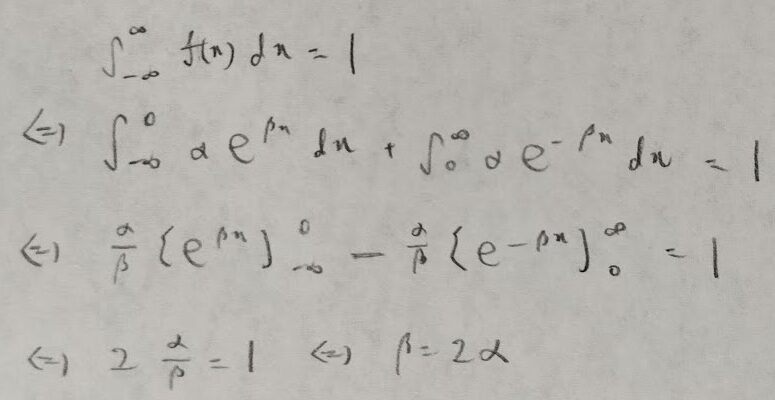 ∫_{-∞}^{∞} f(x) dx = 1
⇔ ∫_{-∞}^{0} α e^{βx} dx + ∫_{0}^{∞} α e^{-βx} dx = 1
⇔ α/β [e^{βx}]_{-∞}^{0} - α/β [e^{-βx}]_{0}^{∞} = 1
⇔ 2 α/β = 1 ⇔ β = 2α